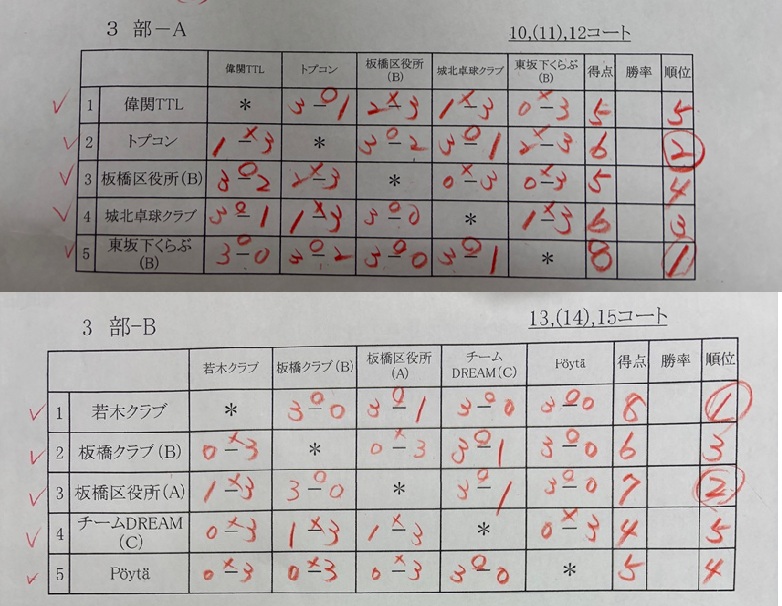 3 部－A 10,(11),12コート
偉関TTL トプコン 板橋区役所(B) 城北卓球クラブ 東坂下くらぶ(B) 得点 勝率 順位
✓ 1 偉関TTL * 3-○1 2-×3 1-×3 0-×3 5 5
✓ 2 トプコン 1-×3 * 3-○2 3-○1 2-×3 6 ②
✓ 3 板橋区役所(B) 3-○2 2-×3 * 0-×3 0-×3 5 4
✓ 4 城北卓球クラブ 3-○1 1-×3 3-○0 * 1-×3 6 3
✓ 5 東坂下くらぶ(B) 3-○0 3-○2 3-○0 3-○1 * 8 ①
3 部-B 13,(14),15コート
若木クラブ 板橋クラブ(B) 板橋区役所(A) チームDREAM(C) Pöytä 得点 勝率 順位
✓ 1 若木クラブ * 3-○0 3-○1 3-○0 3-○0 8 ①
✓ 2 板橋クラブ(B) 0-×3 * 0-×3 3-○1 3-○0 6 3
✓ 3 板橋区役所(A) 1-×3 3-○0 * 3-○1 3-○0 7 ②
✓ 4 チームDREAM(C) 0-×3 1-×3 1-×3 * 0-×3 4 5
✓ 5 Pöytä 0-×3 0-×3 0-×3 3-○0 * 5 4